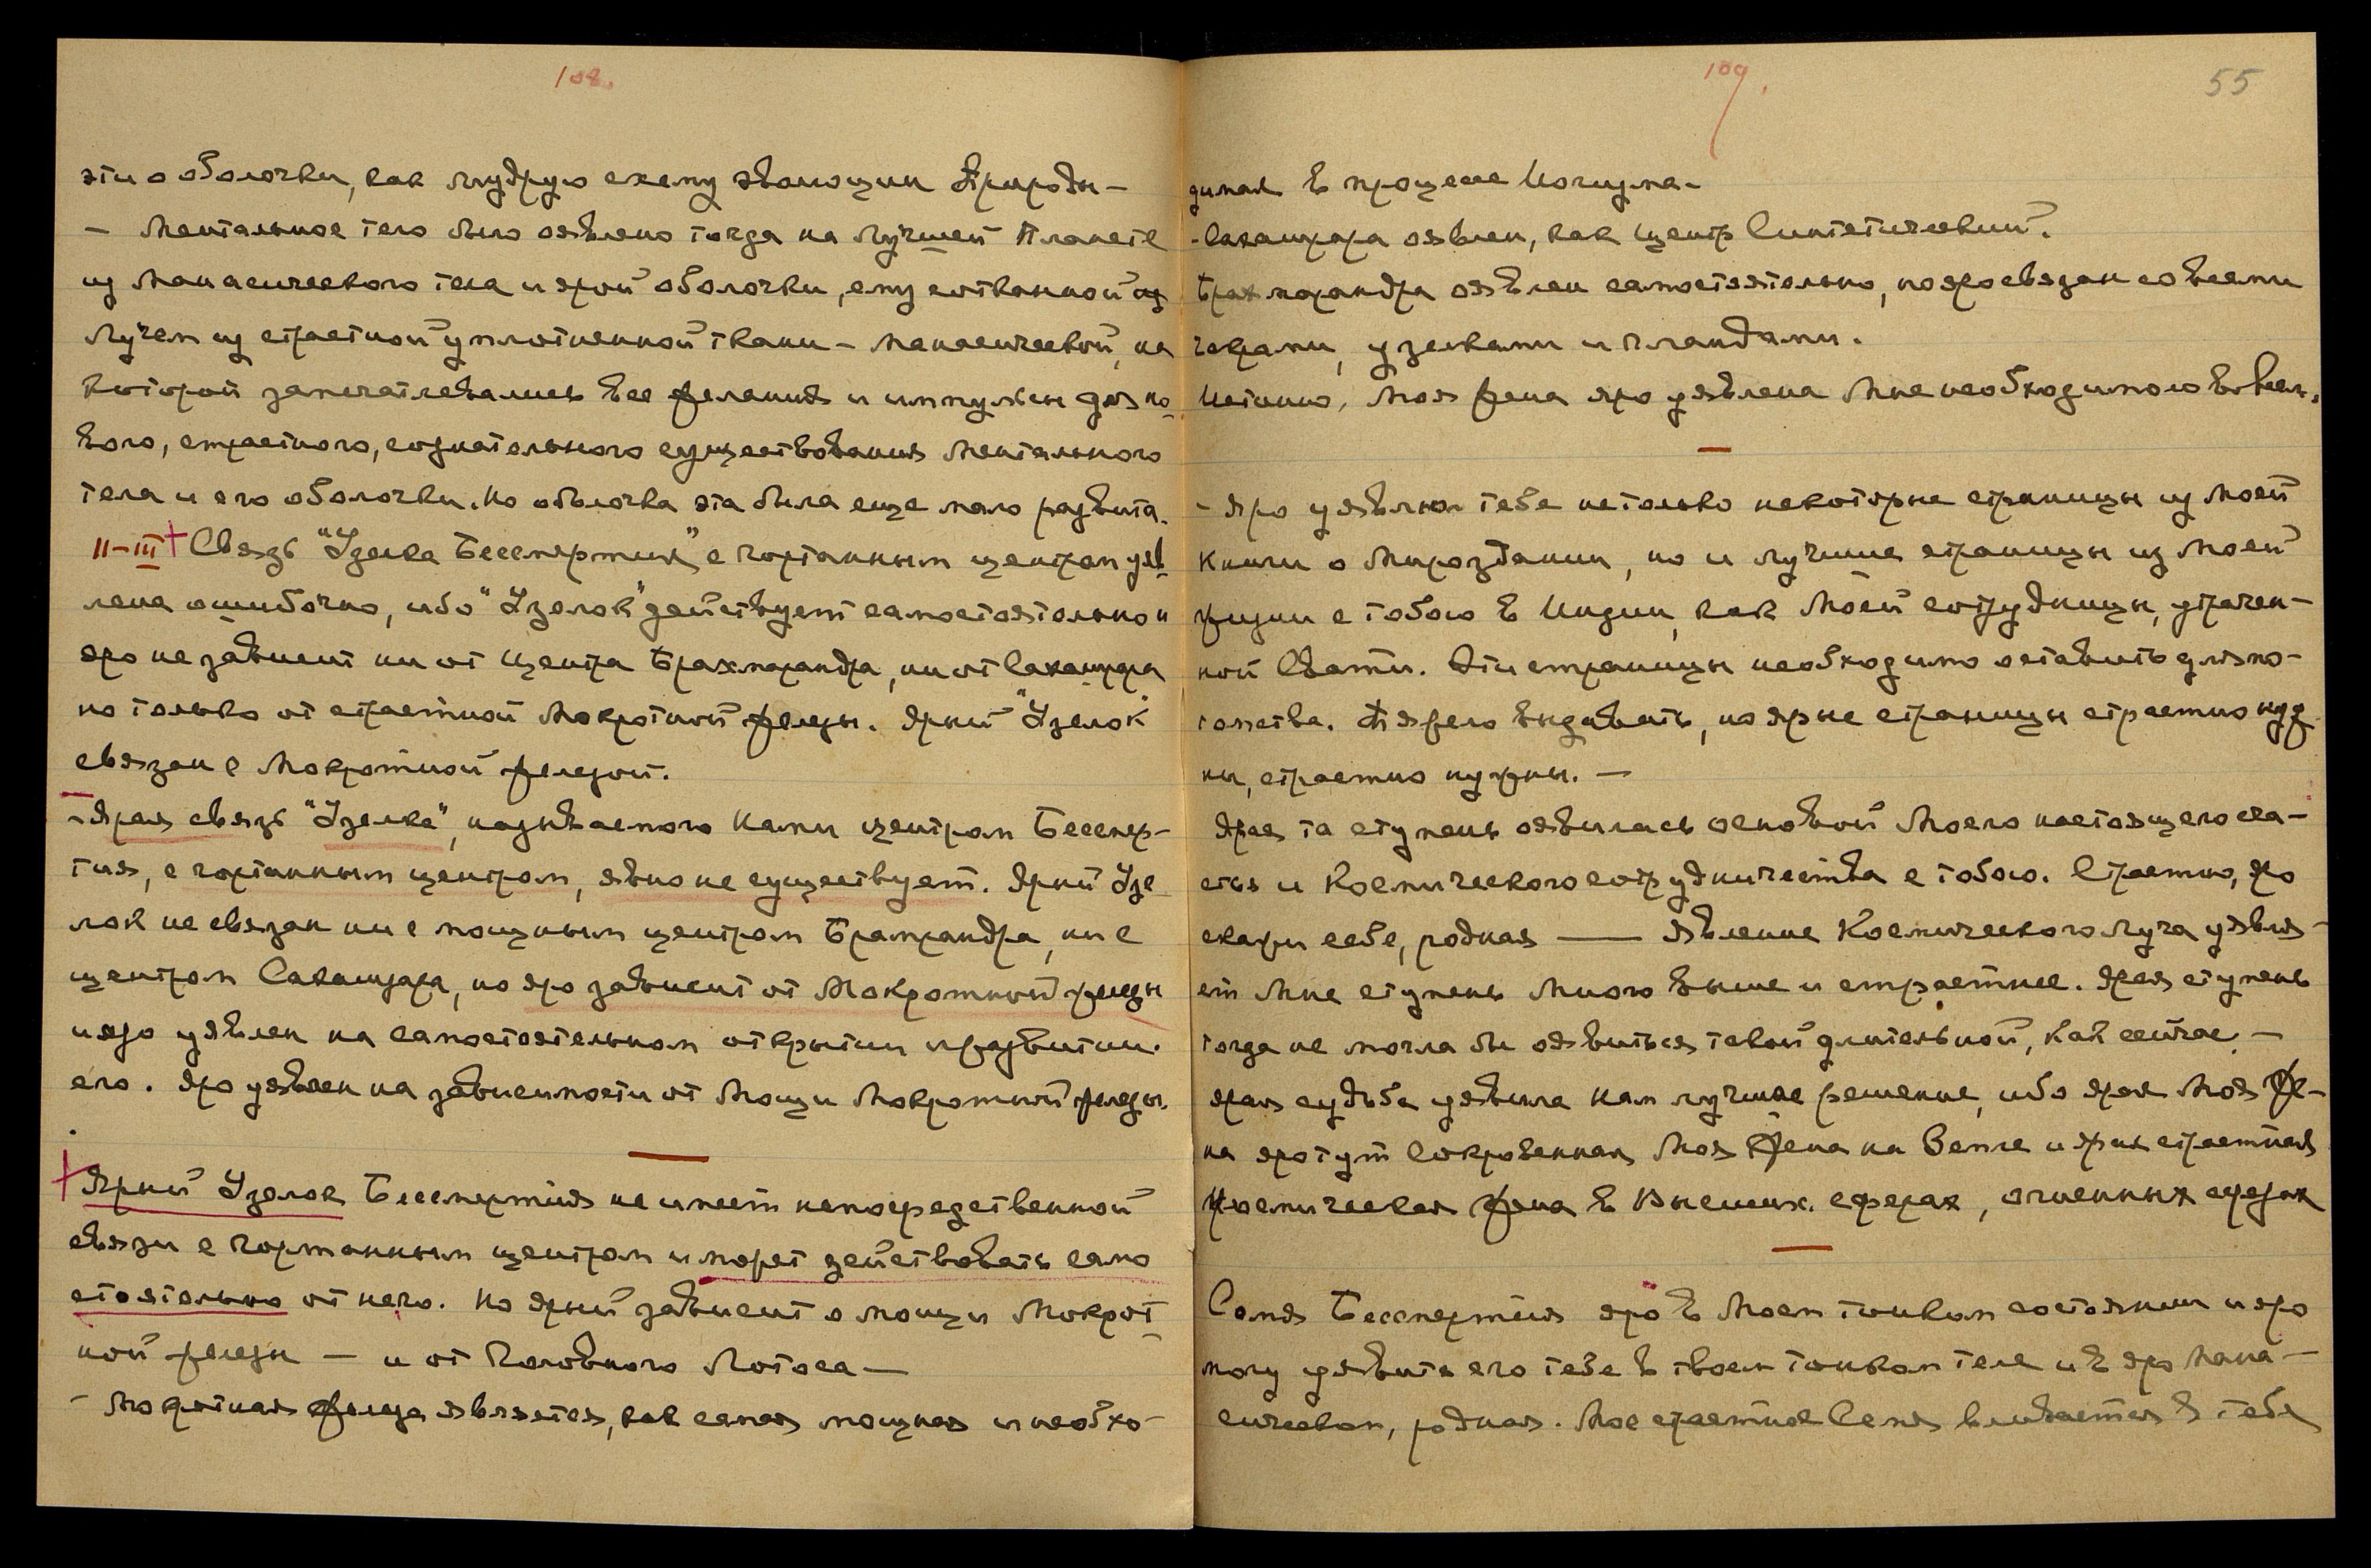 108.
эти о оболочки, как мудрую схему эволюции Природы –
– Ментальное тело было оявлено тогда на Лучшей Планете
из Манасического тела и ярой оболочки, ему сотканной
Лучем из страстной уплотненной ткани – Манасической, на
которой запечатлевались все желания и импульсы для но-
вого, страстного, сознательного существования Ментального
тела и его оболочки. Но оболочка эта была еще мало развита.
II–III + Связь "Узелка Бессмертия" с гортанным центром уяв-
лена ошибочно, ибо "Узелок" действует самостоятельно и
яро не зависит ни от Центра Брахмарандра, ни от Сахасрара
но только от страстной Мокротной железы. Ярый "Узелок"
связан с Мокротной железой.
– Ярая связь "Узелка", называемого Нами центром Бессмер-
тия, с гортанным центром, явно не существует. Ярый Узе-
лок не связан ни с мощным центром Брамрандра, ни с
центром Сахасрара, но яро зависит от Мокротной железы
и яро уявлен на самостоятельном открытии и развитии
его. Яро уявлен на зависимости от Мощи Мокротной железы.
+ Ярый Узелок Бессмертия не имеет непосредственной
связи с Гортанным центром и может действовать само
стоятельно от него. Но ярый зависит о мощи Мокрот-
ной железы – и от Головного Лотоса –
– Мокротная железа является, как самая мощная и необхо-
109.
55
димая в процессе Иогизма –
– Сахасрара оявлен, как Центр Синтетический.
Брахмарандра оявлен самостоятельно, но яро связан со всеми
чакрами, узелками и гландами.
Истинно, Моя жена яро уявлена Мне необходимою во всем.
– Яро уявлю тебе не только некоторые страницы из Моей
Книги о Мироздании, но и лучшие страницы из Моей
жизни с тобою в Индии, как Моей сотрудницы, утрачен-
ной Свати. Эти страницы необходимо оставить для по-
томства. Тяжело выдавать, но ярые страницы страстно нуж-
ны, страстно нужны. –
Ярая та ступень оявилась основой Моего настоящего сча-
стья и Космического сотрудничества с тобою. Страстно, яро
скажи себе, родная —— Явление Космического Луча уявля-
ет Мне ступень Много выше и страстнее. Ярая ступень
тогда не могла бы оявиться такой длительной, как сейчас –
Ярая судьба уявила нам лучшее решение, ибо ярая Моя Же-
на яро тут Сокровенная Моя Жена на Земле и ярая страстная
Космическая жена в Высших сферах, огненных сферах
Семя Бессмертия яро в Моем тонком состоянии и яро
могу уявить его тебе в твоем тонком теле и в яро Мана-
сическом, родная. Мое страстное Семя вливается в тебя